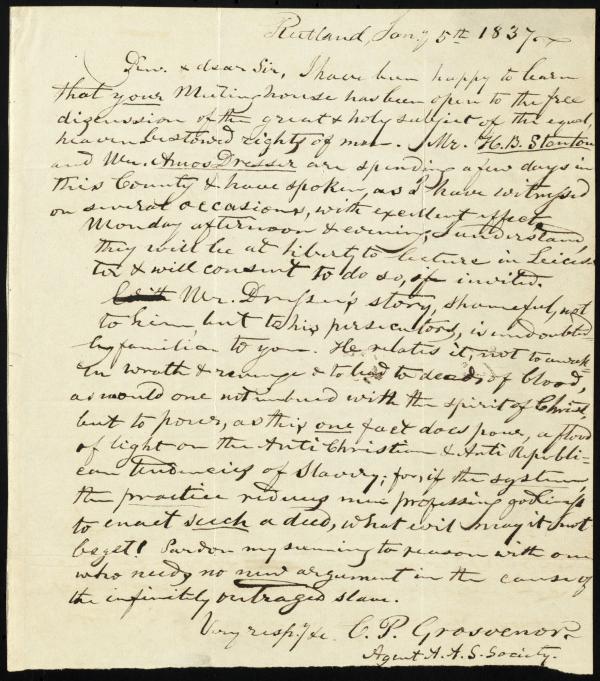 Rutland, Jany 5th 1837.
Rev. & dear Sir, I have been happy to learn
that your Meeting house has been open to the free
discussion of the great & holy subject of the equal,
heaven bestowed rights of man. Mr. H. B. Stanton
and Mr. Amos Dresser are spending a few days in
this County & have spoken, as I have witnessed
on several occasions, with excellent effect.
Monday afternoon & evening, I understand,
they will be at liberty to lecture in Leices-
ter & will consent to do so, if invited.
Mr. Dresser's story, shameful, not
to him, but to his persecutors, is undoubted-
ly familiar to you. He relates it, not to awak-
en wrath & revenge & to lead to deeds of blood,
as would one not imbued with the spirit of Christ,
but to pour, as this one fact does pour, a flood
of light on the Anti Christian & Anti Republi-
can tendencies of Slavery; for, if the system,
the practice men professing godliness
to enact such a deed, what evil may it not
beget! Pardon my seeming to reason with one
who needs no new argument in the cause of
the infinitely outraged slave.
Very respy &c. C. P. Grosvenor.
Agent A. A. S. Society.